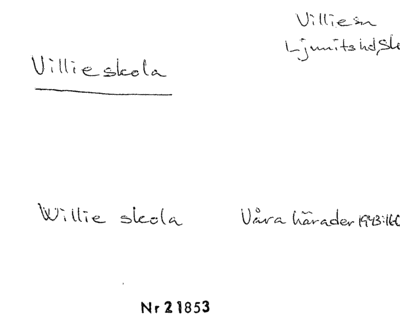 Villie sn
Ljunits hd, Sk
Villie skola
Willie skola
Våra härader 1943:160
Nr 21853